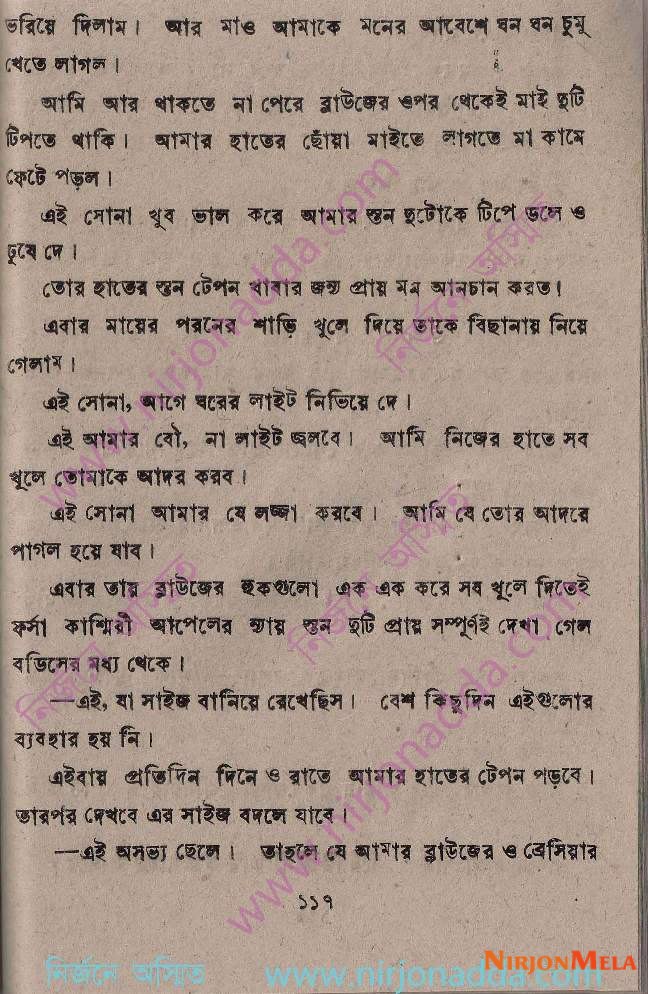 ভরিয়ে দিলাম। আর মাও আমাকে মনের আবেশে ঘন ঘন চুমু
খেতে লাগল।
আমি আর থাকতে না পেরে ব্লাউজের ওপর থেকেই মাই দুটি
টিপতে থাকি। আমার হাতের ছোঁয়া মাইতে লাগতে মা কামে
ফেটে পড়ল।
এই সোনা খুব ভাল করে আমার স্তন দুটোকে টিপে ডলে ও
চুষে দে।
তোর হাতের স্তন টেপন খাবার জন্য প্রায় মন আনচান করত।
এবার মায়ের পরনের শাড়ি খুলে দিয়ে তাকে বিছানায় নিয়ে
গেলাম।
এই সোনা, আগে ঘরের লাইট নিভিয়ে দে।
এই আমার বৌ, না লাইট জ্বলবে। আমি নিজের হাতে সব
খুলে তোমাকে আদর করব।
এই সোনা আমার যে লজ্জা করবে। আমি যে তোর আদরে
পাগল হয়ে যাব।
এবার তার ব্লাউজের হুকগুলো এক এক করে সব খুলে দিতেই
ফর্সা কাশ্মিরী আপেলের ন্যায় স্তন দুটি প্রায় সম্পূর্ণই দেখা গেল
বডিসের মধ্য থেকে।
—এই, যা সাইজ বানিয়ে রেখেছিস। বেশ কিছুদিন এইগুলোর
ব্যবহার হয় নি।
এইবার প্রতিদিন দিনে ও রাতে আমার হাতের টেপন পড়বে।
তারপর দেখবে এর সাইজ বদলে যাবে।
—এই অসভ্য ছেলে। তাহলে যে আমার ব্লাউজের ও ব্রেসিয়ার
১১৭
নির্জনে অস্মিত www.nirjonadda.com
NIRJONMELA
www.nirjonadda.com
নির্জনে অস্মিত
নির্জনে অস্মিত
নির্জনে অস্মিত
www.nirjonadda.com